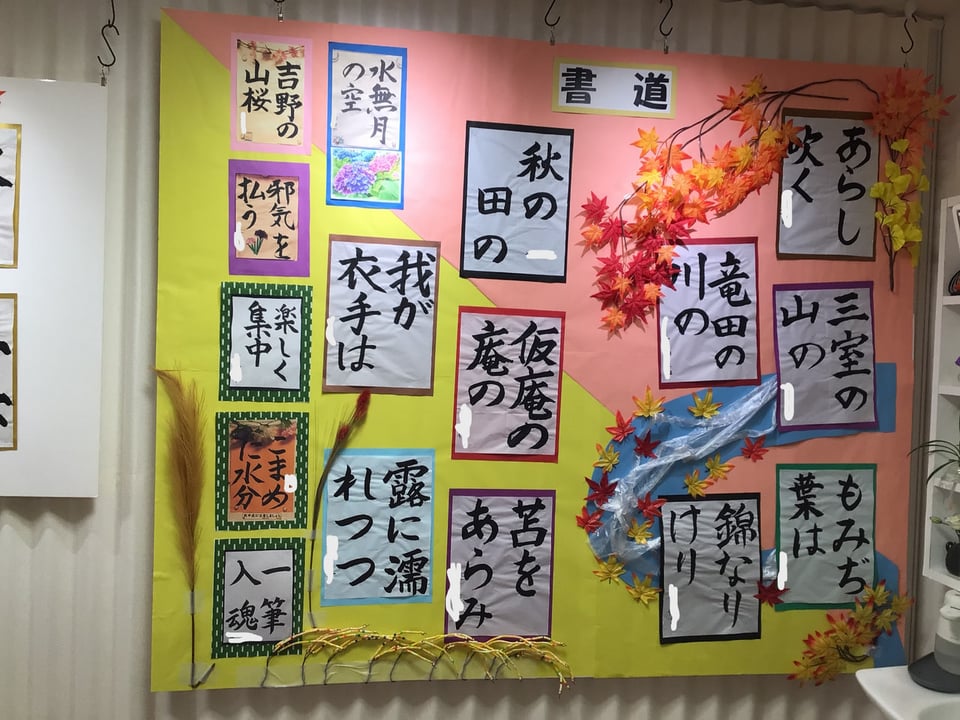 書道
あらし
吹く
三室の
山の
もみぢ
葉は
竜田の
川の
錦なり
けり
秋の
田の
仮庵の
庵の
苫を
あらみ
我が
衣手は
露に濡
れつつ
水無月
の空
吉野の
山桜
邪気を
払う
楽しく
集中
こまめ
に水分
一筆
入魂